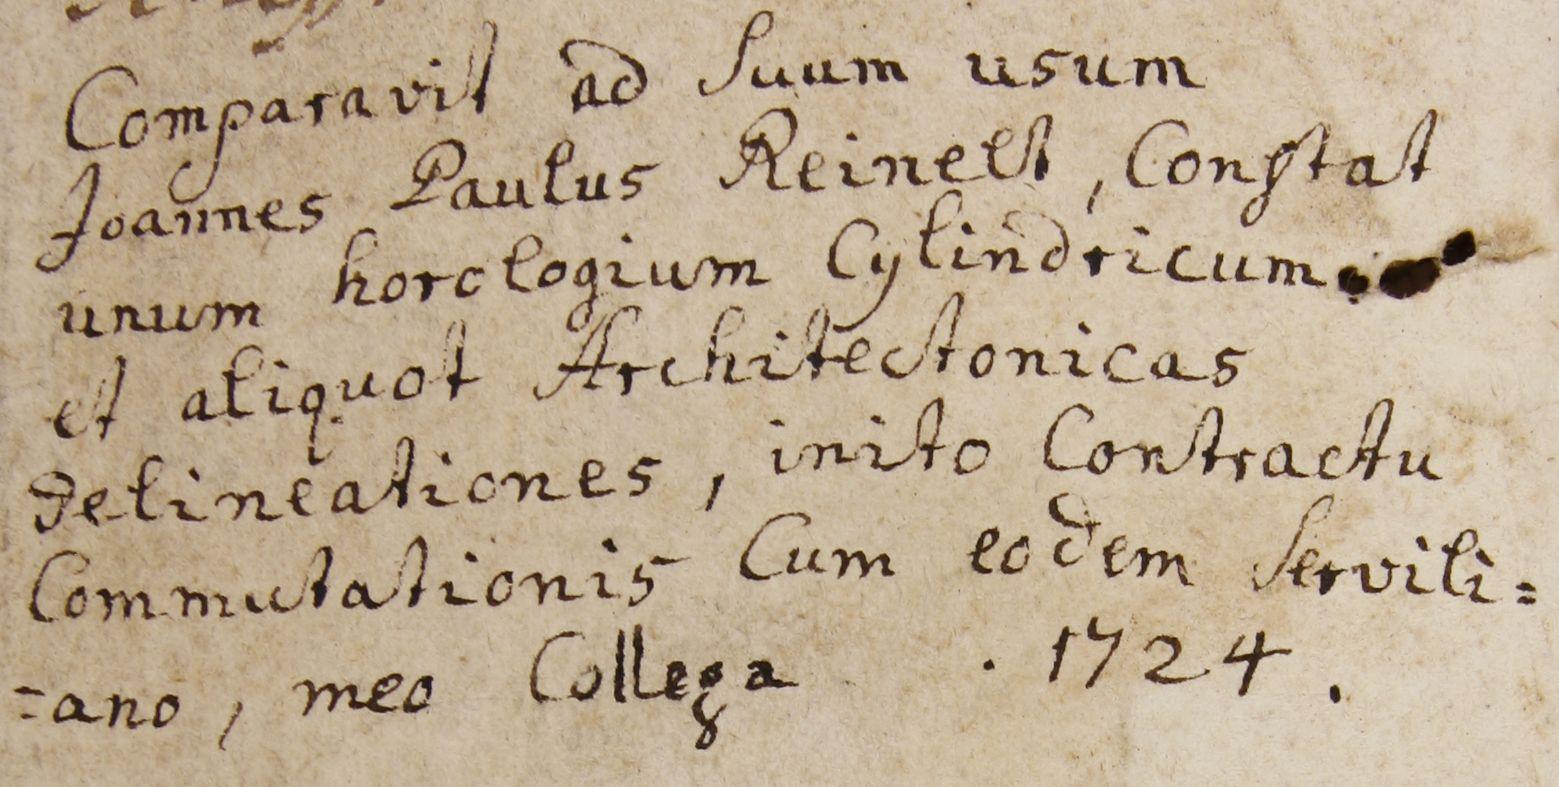 Comparavit ad suum usum
Joannes Paulus Reinelt, Constat
unum horologium Cylindricum
et aliquot Architectonicas
delineationes, inito Contractu
Commutationis Cum eodem Servili=
=ano, meo Collega . 1724.